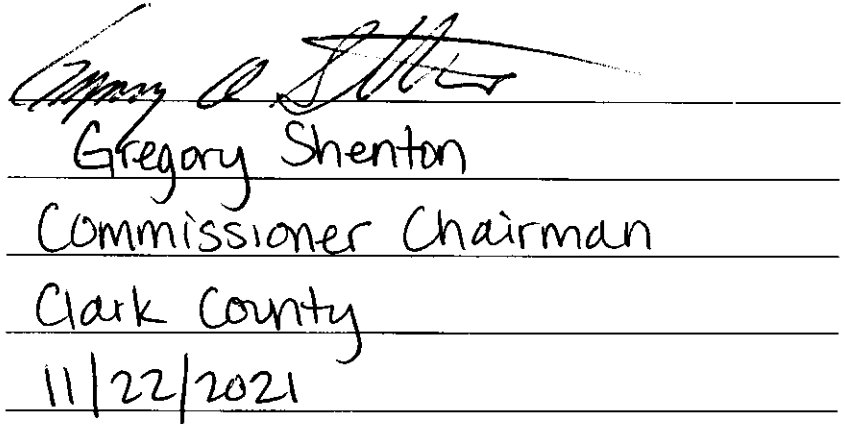 Gregory Shenton
Commissioner Chairman
Clark County
11/22/2021